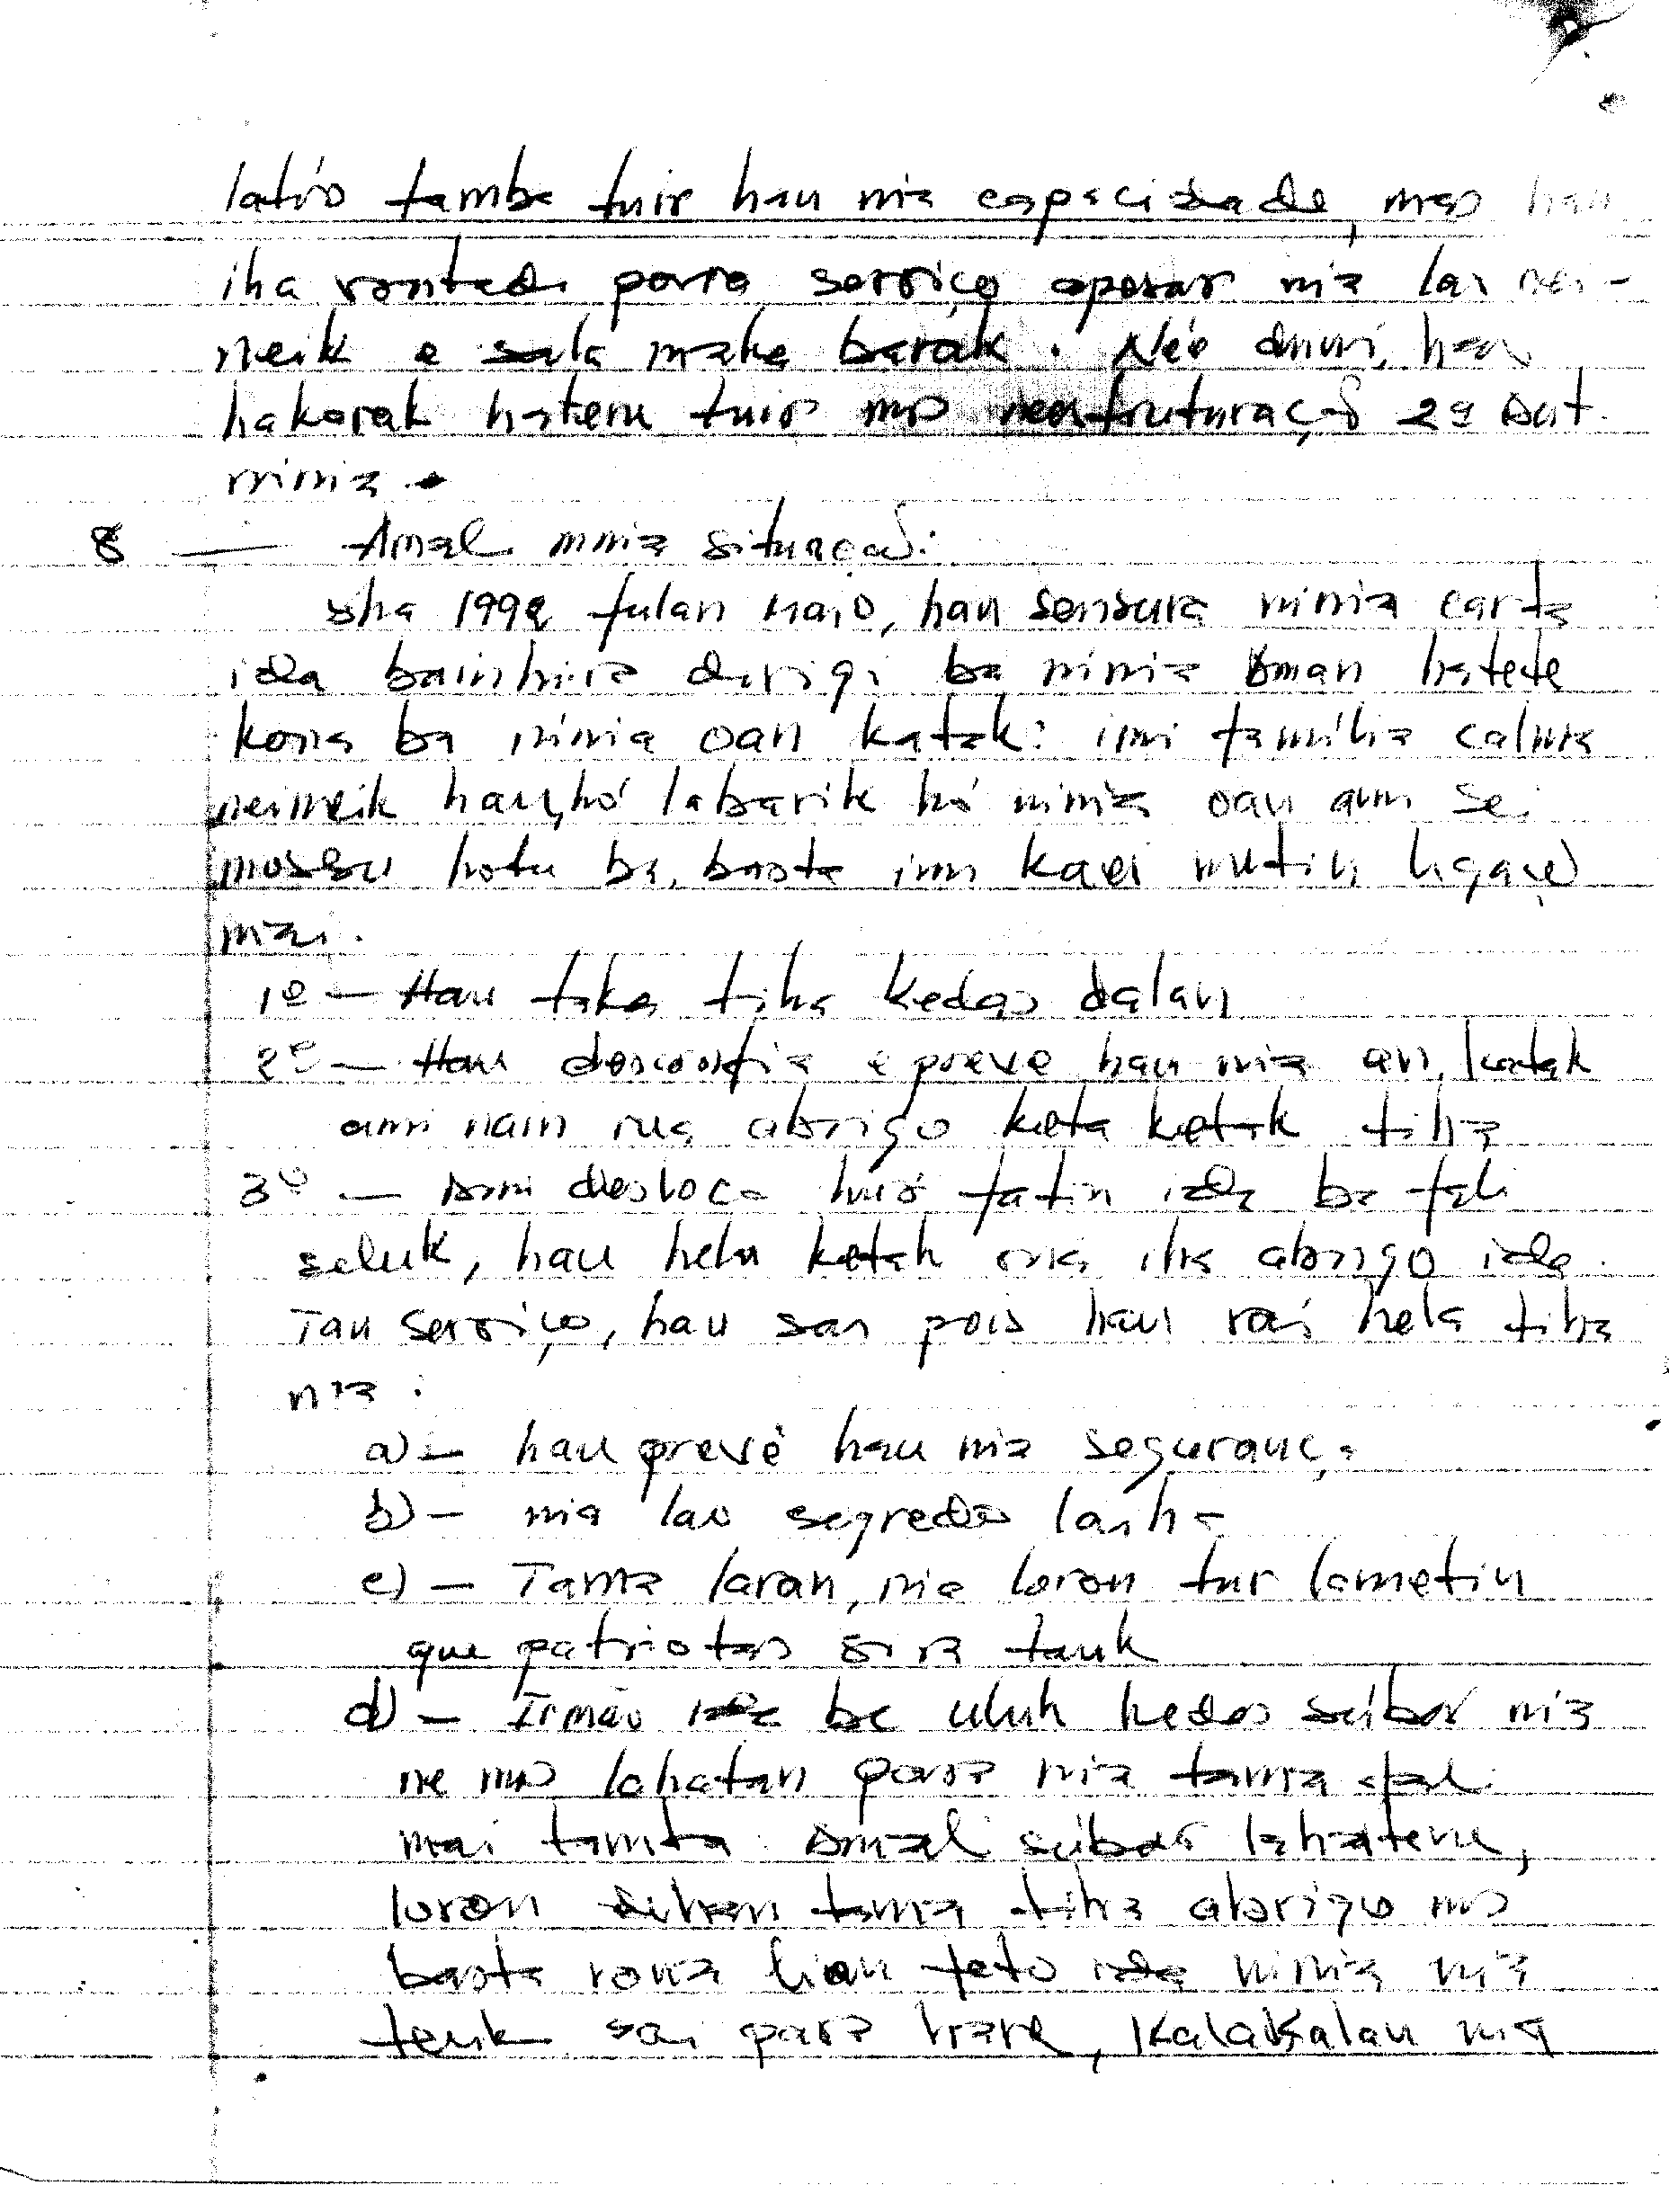 latório tamba tuir hau nia capacidade, mas hau
iha vontade para serviço apesar nia lao nei-
neik e sala maka barak. Né'e duni, hau
hakarak hatene tuir mos reestruturação 2ª
ninia.
8 — Amal ninia situação:
Iha 1992 fulan Maio, hau sensura ninia carta
ida bainhira dirigi ba ninia oman hatete
kona ba ninia oan katak: imi família calma
neineik hau, hó labarik hó ninia oan ami sei
mosu hotu ba, basta imi kaer mutin ligação
mai.
1º — Hau taka tiha kedas dalan
2º — Hau desconfia e preve hau nia an, katak
ami nain rua abrigo keta ketak tiha
3º — Ami desloca husi fatin ida ba fali
seluk, hau hela ketak ona iha abrigo ida.
Tau serviço, hau sai pois hau rai hela tiha
nia.
a) — hau prevê hau nia segurança
b) — nia lao segredo laiha
c) — Tama laran, nia loron tur lametin
que patriotas sira tauk
d) — Irmão ida be uluk kedas subar nia
ne mos lohatan para nia tama fali
mai tamba Amal subar lahatene,
loron tama tiha abrigo mos
basta rona lian feto ida ninia nia
tenik sai para hare, Kalakalan nia